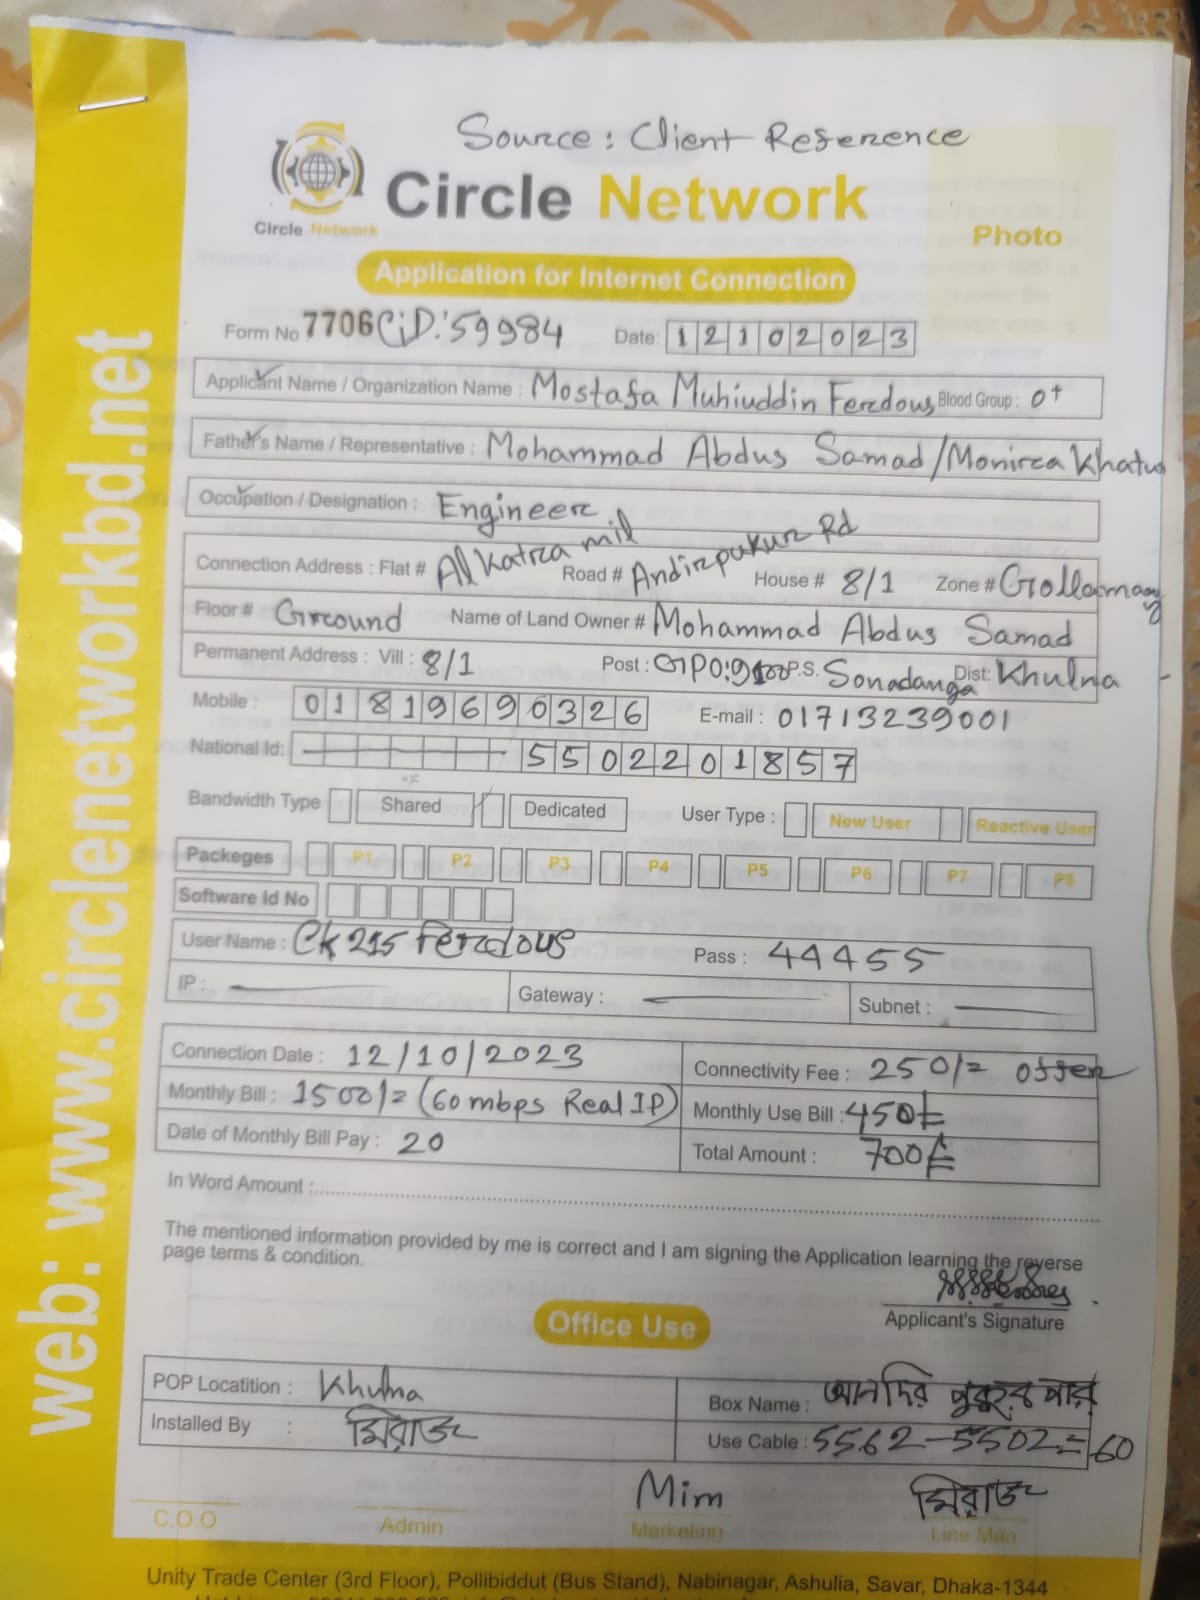 Source: Client Reference
Circle Network
Circle Network
Photo
Application for Internet Connection
Form No 7706 CiD:'59984 Date: 12102023
Applicant Name / Organization Name : Mostafa Muhiuddin Ferdous Blood Group : O+
Father's Name / Representative : Mohammad Abdus Samad/Monirea Khatun
Occupation / Designation : Engineer
Connection Address : Flat # Al Katra mil Road # Andirpukur Rd House # 8/1 Zone # Gollamary
Floor # Ground Name of Land Owner # Mohammad Abdus Samad
Permanent Address : Vill : 8/1 Post : GPO:9100 P.S. Sonadanga Dist: Khulna
Mobile : 01819690326 E-mail : 01713239001
National Id: 5502201857
Bandwidth Type Shared Dedicated User Type : New User Reactive User
Packeges P1 P2 P3 P4 P5 P6 P7 P8
Software Id No
User Name : Ck215 Ferdous Pass : 44455
IP : Gateway : Subnet :
Connection Date : 12/10/2023 Connectivity Fee : 250/= offer
Monthly Bill : 1500/= (60 mbps Real IP) Monthly Use Bill : 450/=
Date of Monthly Bill Pay : 20 Total Amount : 700/=
In Word Amount :
The mentioned information provided by me is correct and I am signing the Application learning the reverse
page terms & condition.
Applicant's Signature
Office Use
POP Locatition : Khulna Box Name : আনদির পুকুর পার
Installed By : মিরাজ Use Cable : 5562-5502=60
Mim মিরাজ
C.O.O Admin Marketing Line Man
Unity Trade Center (3rd Floor), Pollibiddut (Bus Stand), Nabinagar, Ashulia, Savar, Dhaka-1344
web: www.circlenetworkbd.net